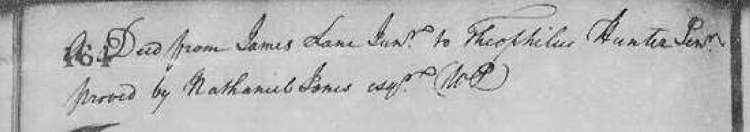 464 A Deed from James Lane Junr. to Theophilus Hunter Senr.
proved by Nathaniel Jones esqr. (WP)